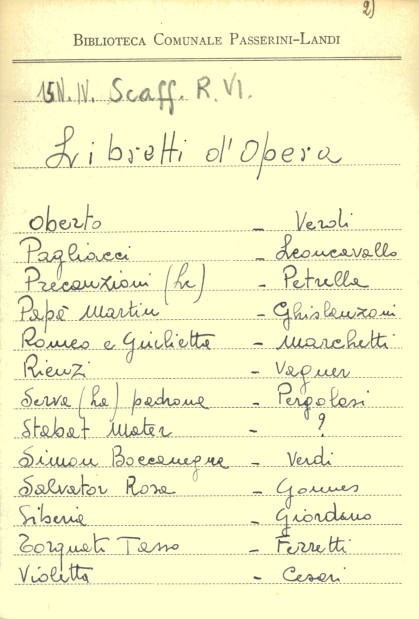 2)
BIBLIOTECA COMUNALE PASSERINI-LANDI
15N. IV. Scaff. R. VI.
Libretti d'Opera
Oberto - Verdi
Pagliacci - Leoncavallo
Precauzioni (Le) - Petrella
Papà Martin - Ghislanzoni
Romeo e Giulietta - Marchetti
Rienzi - Vagner
Serva (La) padrona - Pergolesi
Stabat Mater - ?
Simon Boccanegra - Verdi
Salvator Rosa - Gomes
Siberia - Giordano
Torquato Tasso - Ferretti
Violetta - Cesari